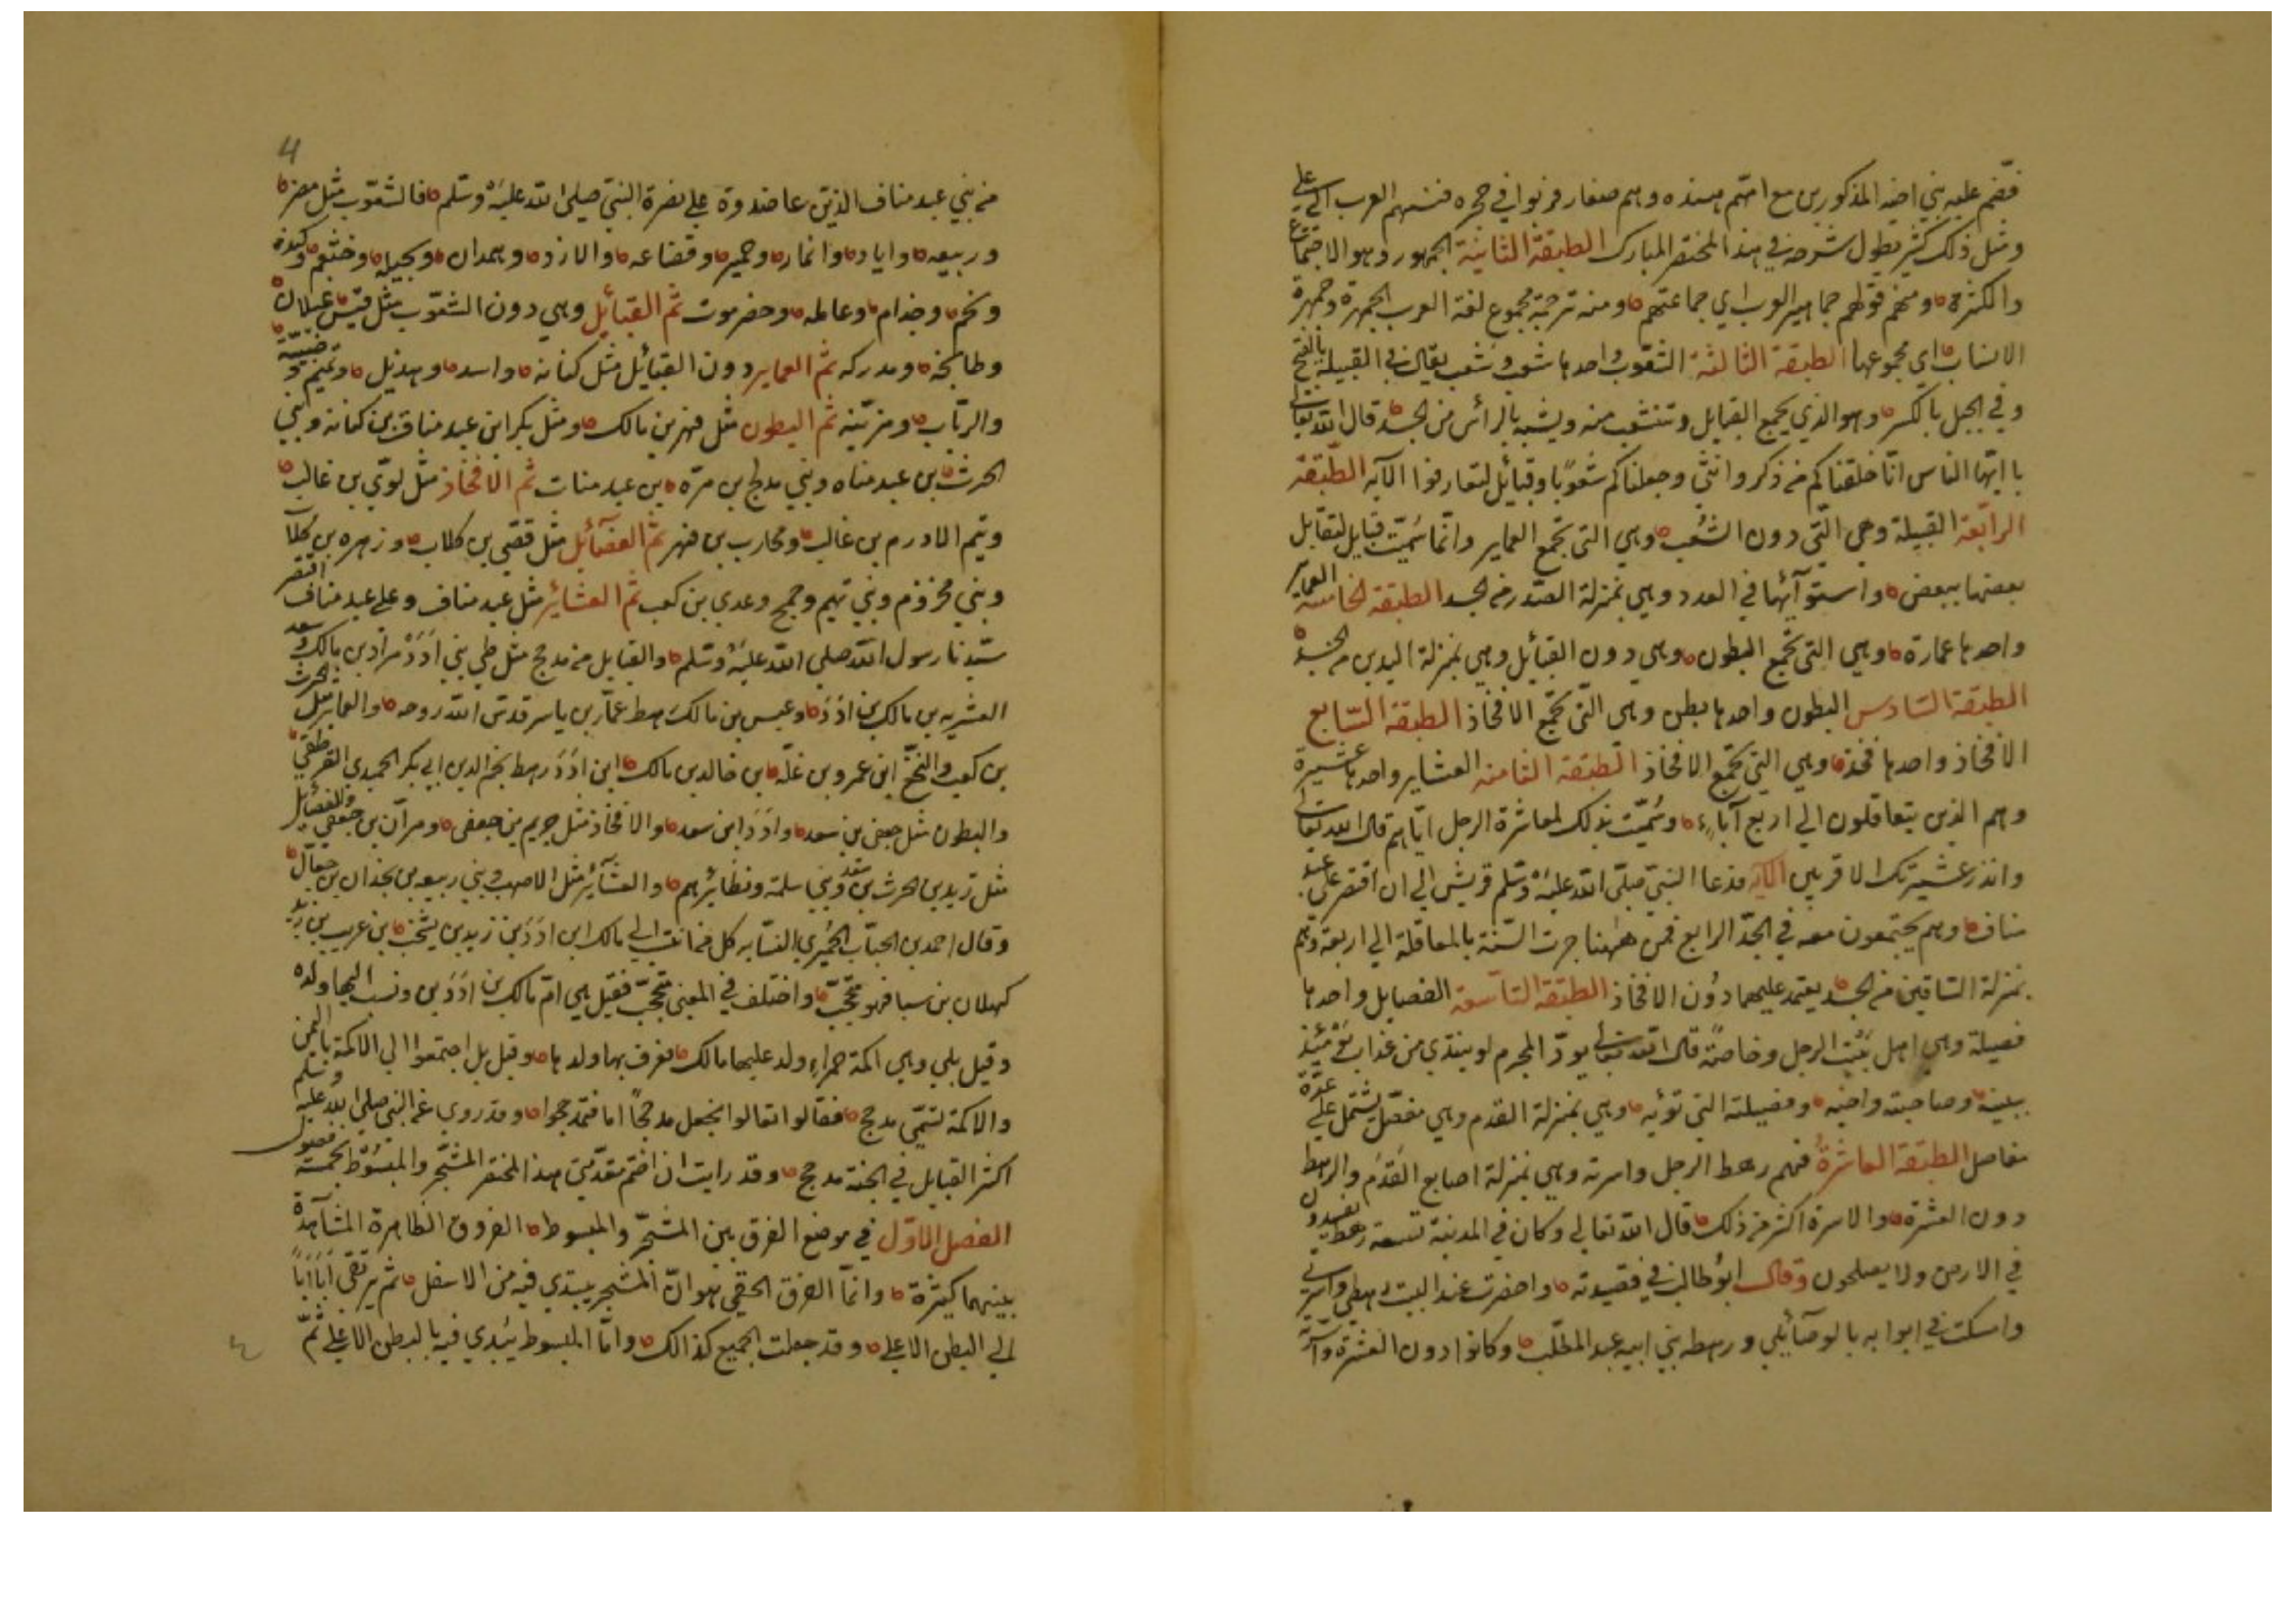 فضم عليه بني اخيه المذكورين مع امهم هذه وهم صغار فربوا في حجره فنسبهم العرب الي علي
ومثل ذلك كثير يطول شرحه في هذا المختصر المبارك الطبقة الثانية الجمهور وهو الاجتماع
والكثرة ومنهم قولهم جماهير العرب اي جماعتهم ومنه ترجمة مجموع لغة العرب الجمهرة وجمهرة
الانساب اي مجموعها الطبقة الثالثة الشعوب واحدها شعب وشعب يقال في القبيلة بالفتح
وفي الجبل بالكسر وهو الذي يجمع القبايل وتتشعب منه ويشبه بالرأس من الجسد قال الله تعالى
يا ايها الناس انا خلقناكم من ذكر وانثى وجعلناكم شعوبا وقبائل لتعارفوا الآيه الطبقة
الرابعة القبيلة وهي التي دون الشعب وهي التي تجمع العماير وانما سميت قبايل لتقابل
بعضها ببعض واستوآئها في العدد وهي بمنزلة الصدر من الجسد الطبقة الخامسة العماير
واحدها عمارة وهي التي تجمع البطون وهي دون القبائل وهي بمنزلة اليدين من الجسد
الطبقة السادس البطون واحدها بطن وهي التي تجمع الافخاذ الطبقة السابع
الافخاذ واحدها فخذ وهي التي تجمع الافخاذ الطبقة الثامنه العشاير واحدها عشيرة
وهم الذين يتعاقلون الي اربع آباء وسميت بذلك لمعاشرة الرجل اياهم قال الله تعالى
وانذر عشيرتك الاقربين الآيه فدعا النبي صلى الله عليه وسلم قريش الي ان اقتصر على عبد
مناف وهم يجتمعون معه في الجد الرابع فمن ههنا جرت السنة بالمعاقلة الي اربعة وهم
بمنزلة الساقين من الجسد يعتمد عليهما دون الافخاذ الطبقة التاسعة الفصايل واحدها
فصيلة وهي اهل بيت الرجل وخاصة قال الله تعالى يود المجرم لو يفتدي من عذاب يومئذ
ببنيه وصاحبته واخيه وفصيلته التي تؤيه وهي بمنزلة القدم وهي مفصل يشتمل على عدة
مفاصل الطبقة العاشرة فهم رهط الرجل واسرته وهي بمنزلة اصابع القدم والرهط
دون العشرة والاسرة اكثر من ذلك قال الله تعالي وكان في المدينة تسعة رهط يفسدون
في الارض ولا يصلحون وقال ابو طالب في قصيدته واحضرت عند البيت رهطي واسرتي
وامسكت في ابوابه بالوصآئلي ورهطه بني ابيه عبد المطلب وكانوا دون العشرة واسرته
4
من بني عبد مناف الذين عاضدوة على نصرة النبي صلى الله عليه وسلم فالشعوب مثل مضر
وربيعه واياد وانمار وحمير وقضاعه والازد وهمدان وبجيله وخثعم وكنده
ولخم وجذام وعامله وحضرموت ثم القبائل وهي دون الشعوب مثل قيس عيلان
وطابخه ومدركه ثم العماير دون القبائل مثل كنانه واسد وهذيل وتميم وضبيه
والرباب ومزينه ثم البطون مثل فهر بن مالك ومثل بكر ابن عبد مناف بن كنانه وبني
الحرث بن عبد مناه وبني مدلج بن مره بن عبد منات ثم الافخاذ مثل لوي بن غالب
وتيم الادرم بن غالب ومحارب بن فهر ثم الفصآئل مثل قصي بن كلاب وزهره بن كلاب
وبني مخزوم وبني تيم وجمح وعدي بن كعب ثم العشائر مثل عبد مناف وعلى عبد مناف اقتصر
سيدنا رسول الله صلى الله عليه وسلم والقبايل من مدجح مثل طي بني ادد مراد بن مالك وسعد
العشيره بن مالك بن ادد وعبس بن مالك رهط عمار بن ياسر قدس الله روحه والعماير مثل الحرث
بن كعب والنخع ابن عمرو بن غله بن خالد بن مالك ابن ادد رهط نجم الدين ابي بكر الحميدي القرطقي
والبطون مثل جعفى بن سعد وادد ابن سعد والافخاذ مثل حريم بن جعفى ومرآن بن جعفي والفصائل
مثل زيد بن الحرث بن سعد وبني سلمة ونظائرهم والعشآئر مثل الاصهب وبني ربيعه بن بجدال بن جعآل
وقال احمد بن الحباب الحميري النسابه كل من انتسب الي مالك ابن ادد بن زيد بن يشجب بن عريب بن زيد
كهلان بن سبا فهو مجحب واختلف في المعنى مجحب فقيل هي ام مالك بن ادد بن ونسب اليها ولده
وقيل بلي وهي اكمة حمراء ولد عليها مالك فعرف بها ولدها وقيل بل اجتمعوا الى الاكمة باليمن
والاكمة تسمى مدجح فقالوا تعالوا نجعل مدجحا اما فتمدجحوا وقد روي عن النبي صلى الله عليه وسلم
اكثر القبايل في الجنة مدجح وقد رايت ان اختم مقدمتي هذا المختصر المشجر والمبسوط بخمسة فصول
الفصل الاول في موضع الفرق بين المشجر والمبسوط الفروق الظاهرة المشآهدة
بينهما كثيرة وانما الفرق الحقي هو ان المشجر يبتدي فيه من الاسفل ثم يرتقى ابا ابا
الي البطن الاعلي وقد جعلت الجميع كذالك واما المبسوط يبدي فيه بالبطن الاعلي ثم